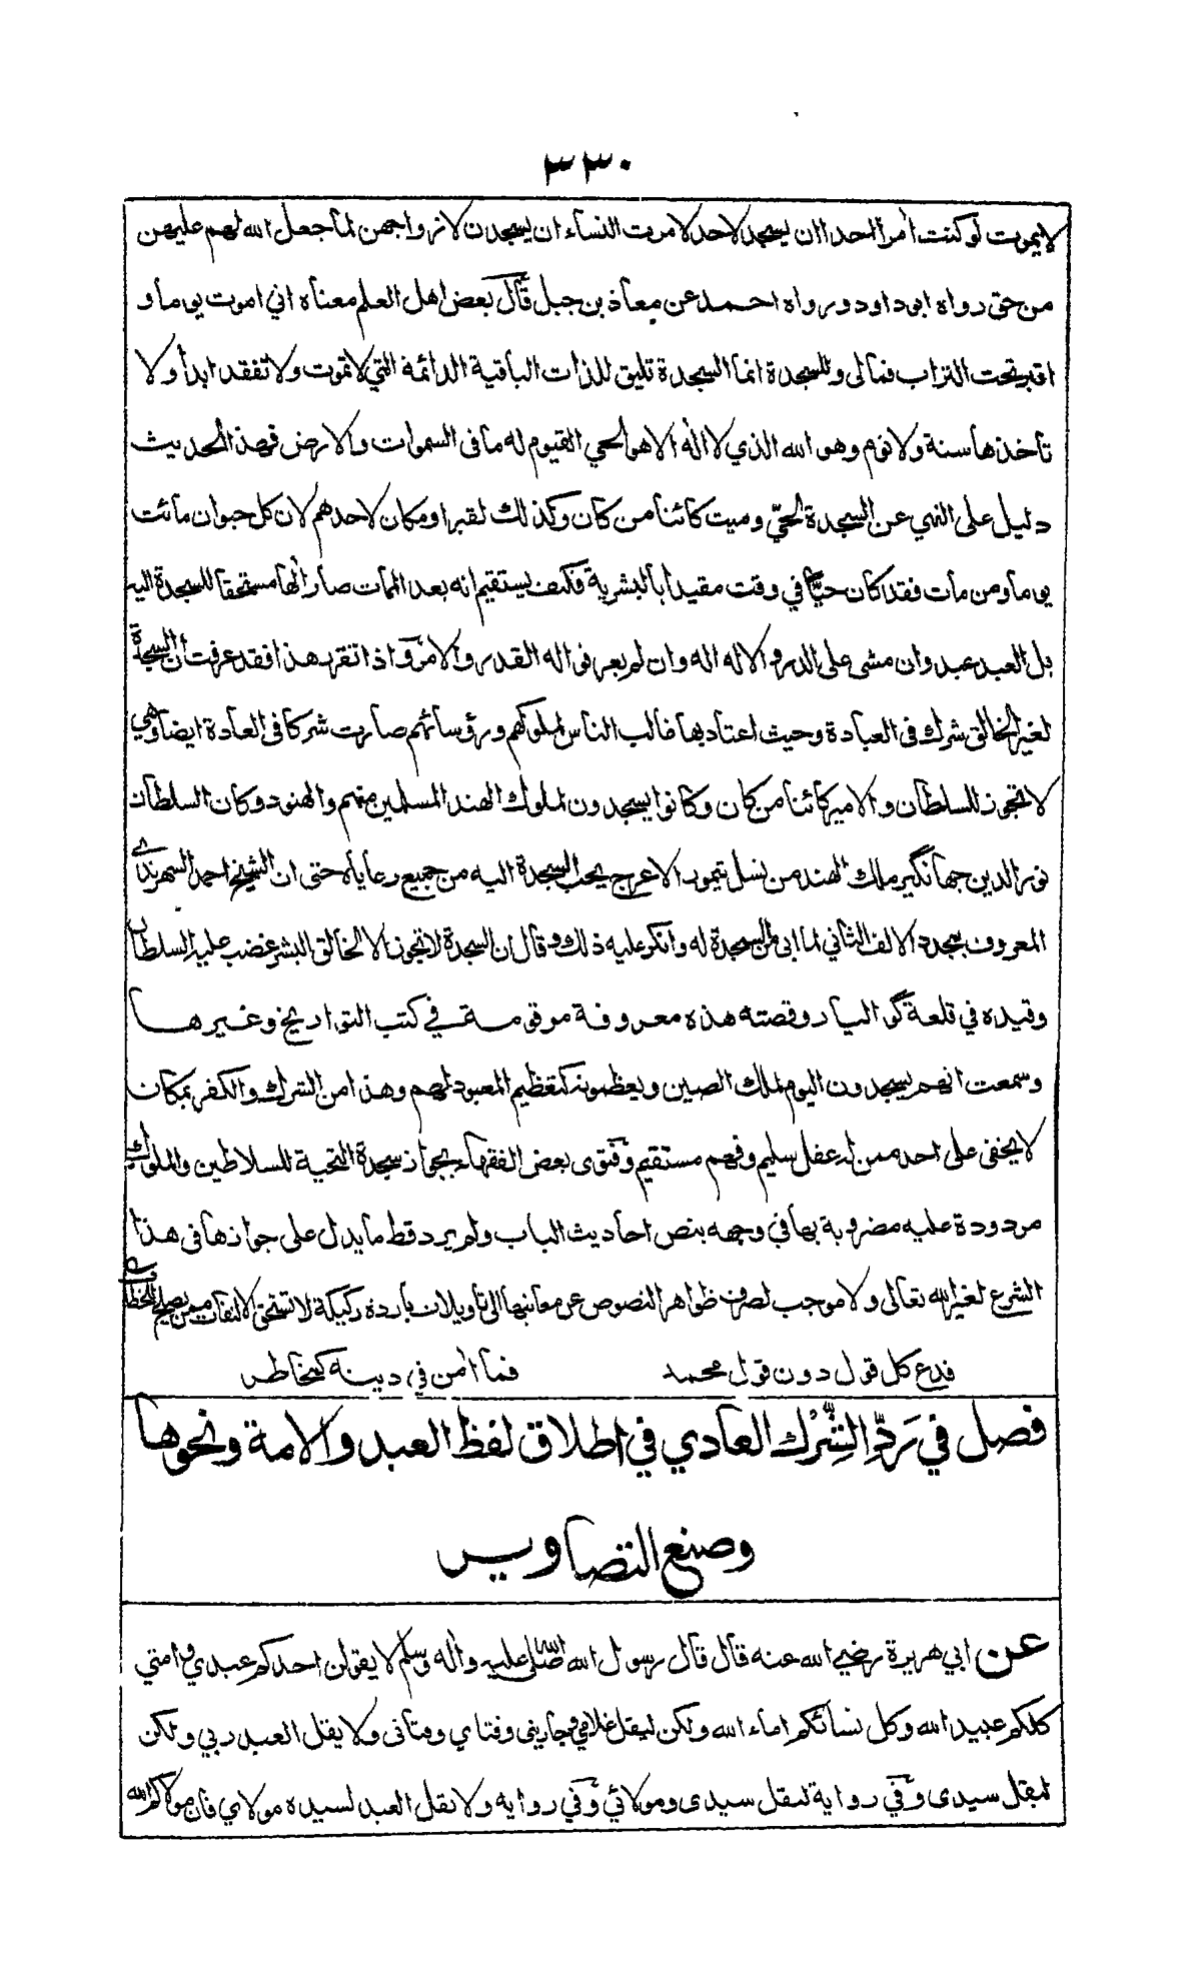 ٣٣٠
لا يموت لو كنت أمرا احدا ان يسجد لاحد لامرت النساء ان يسجدن لازواجهن لما جعل الله لهم عليهن
من حق رواه ابو داود ورواه احمد عن معاذ بن جبل قال بعض اهل العلم معناه اني اموت يوما و
اقبر تحت التراب فمالى وللسجدة انما السجدة تليق للذات الباقية الدائمة التي لا تموت ولا تفقد ابدا ولا
تأخذها سنة ولا نوم وهو الله الذي لا اله الا هو الحي القيوم له ما فى السموات والارض فهذا الحديث
دليل على النهي عن السجدة لحيّ وميت كائنا من كان وكذلك لقبر او مكان لاحدهم لان كل حيوان مائت
يوما ومن مات فقد كان حيّا في وقت مقيدا بالبشرية فكيف يستقيم انه بعد الممات صار الٰها مستحقا للسجدة اليه
بل العبد عبد وان مشى على الدر والاله اله وان لم يعرفوا اله القدر والامر واذا تقرر هذا فقد عرفت أن السجدة
لغير الخالق شرك فى العبادة وحيث اعتاد بها غالب الناس لملوكهم ورؤسائهم صارت شركا فى العادة ايضا وهي
لا تجوز للسلطان والامير كائنا من كان وكانوا يسجدون لملوك الهند المسلمين منهم والهنود وكان السلطان
نور الدين جهانگير ملك الهند من نسل تيمور الاعرج يحب السجدة اليه من جميع رعاياه حتى ان الشيخ احمد السهرندي
المعروف بمجدد الالف الثاني لما ابى من السجدة له وانكر عليه ذلك وقال ان السجدة لا تجوز الا لخالق البشر غضب عليه السلطان
وقيده في قلعة گواليار وقصته هذه معروفة مرقومة في كتب التواريخ وغيرها
وسمعت انهم يسجدون اليوم لملك الصين ويعظمونه كتعظيم المعبود لهم وهذا من الشرك والكفر بمكان
لا يخفى على احد ممن له عقل سليم وفهم مستقيم وفتوى بعض الفقهاء بجواز سجدة التحية للسلاطين والملوك
مردودة عليه مضروبة بها في وجهه بنص احاديث الباب ولم يرد قط ما يدل على جوازها فى هذا
الشرع لغير الله تعالى ولا موجب لصرف ظواهر النصوص عن معانيها الى تأويلات باردة ركيكة لا تستحق الالتفات ممن يصلح للخطاب
فدع كل قول دون قول محمد فما امن في دينه كمخاطر
فصل في رَدِّ الشِّرْك العادي في اطلاق لفظ العبد والامة ونحوها
وصنع التصاوير
عن ابي هريرة رضي الله عنه قال قال رسول الله صلى الله عليه واله وسلم لا يقولن احدكم عبدي وامتي
كلكم عبيد الله وكل نسائكم اماء الله ولكن ليقل غلامي وجاريتي وفتاي وفتاتى ولا يقل العبد ربي ولكن
ليقل سيدى وفي رواية ليقل سيدى ومولائي وفي رواية ولا يقل العبد لسيده مولاي فان مولاكم الله